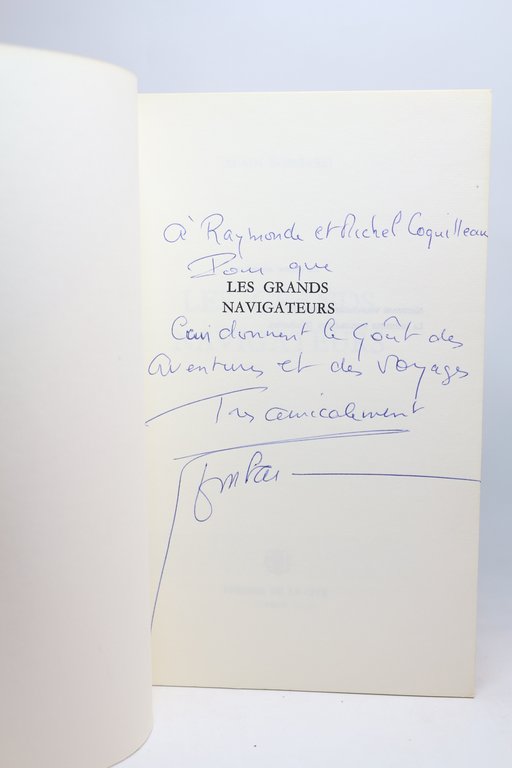 à Raymonde et Michel Coquilleau
Pour que
LES GRANDS
NAVIGATEURS
donnent le goût des
aventures et des voyages
Très amicalement